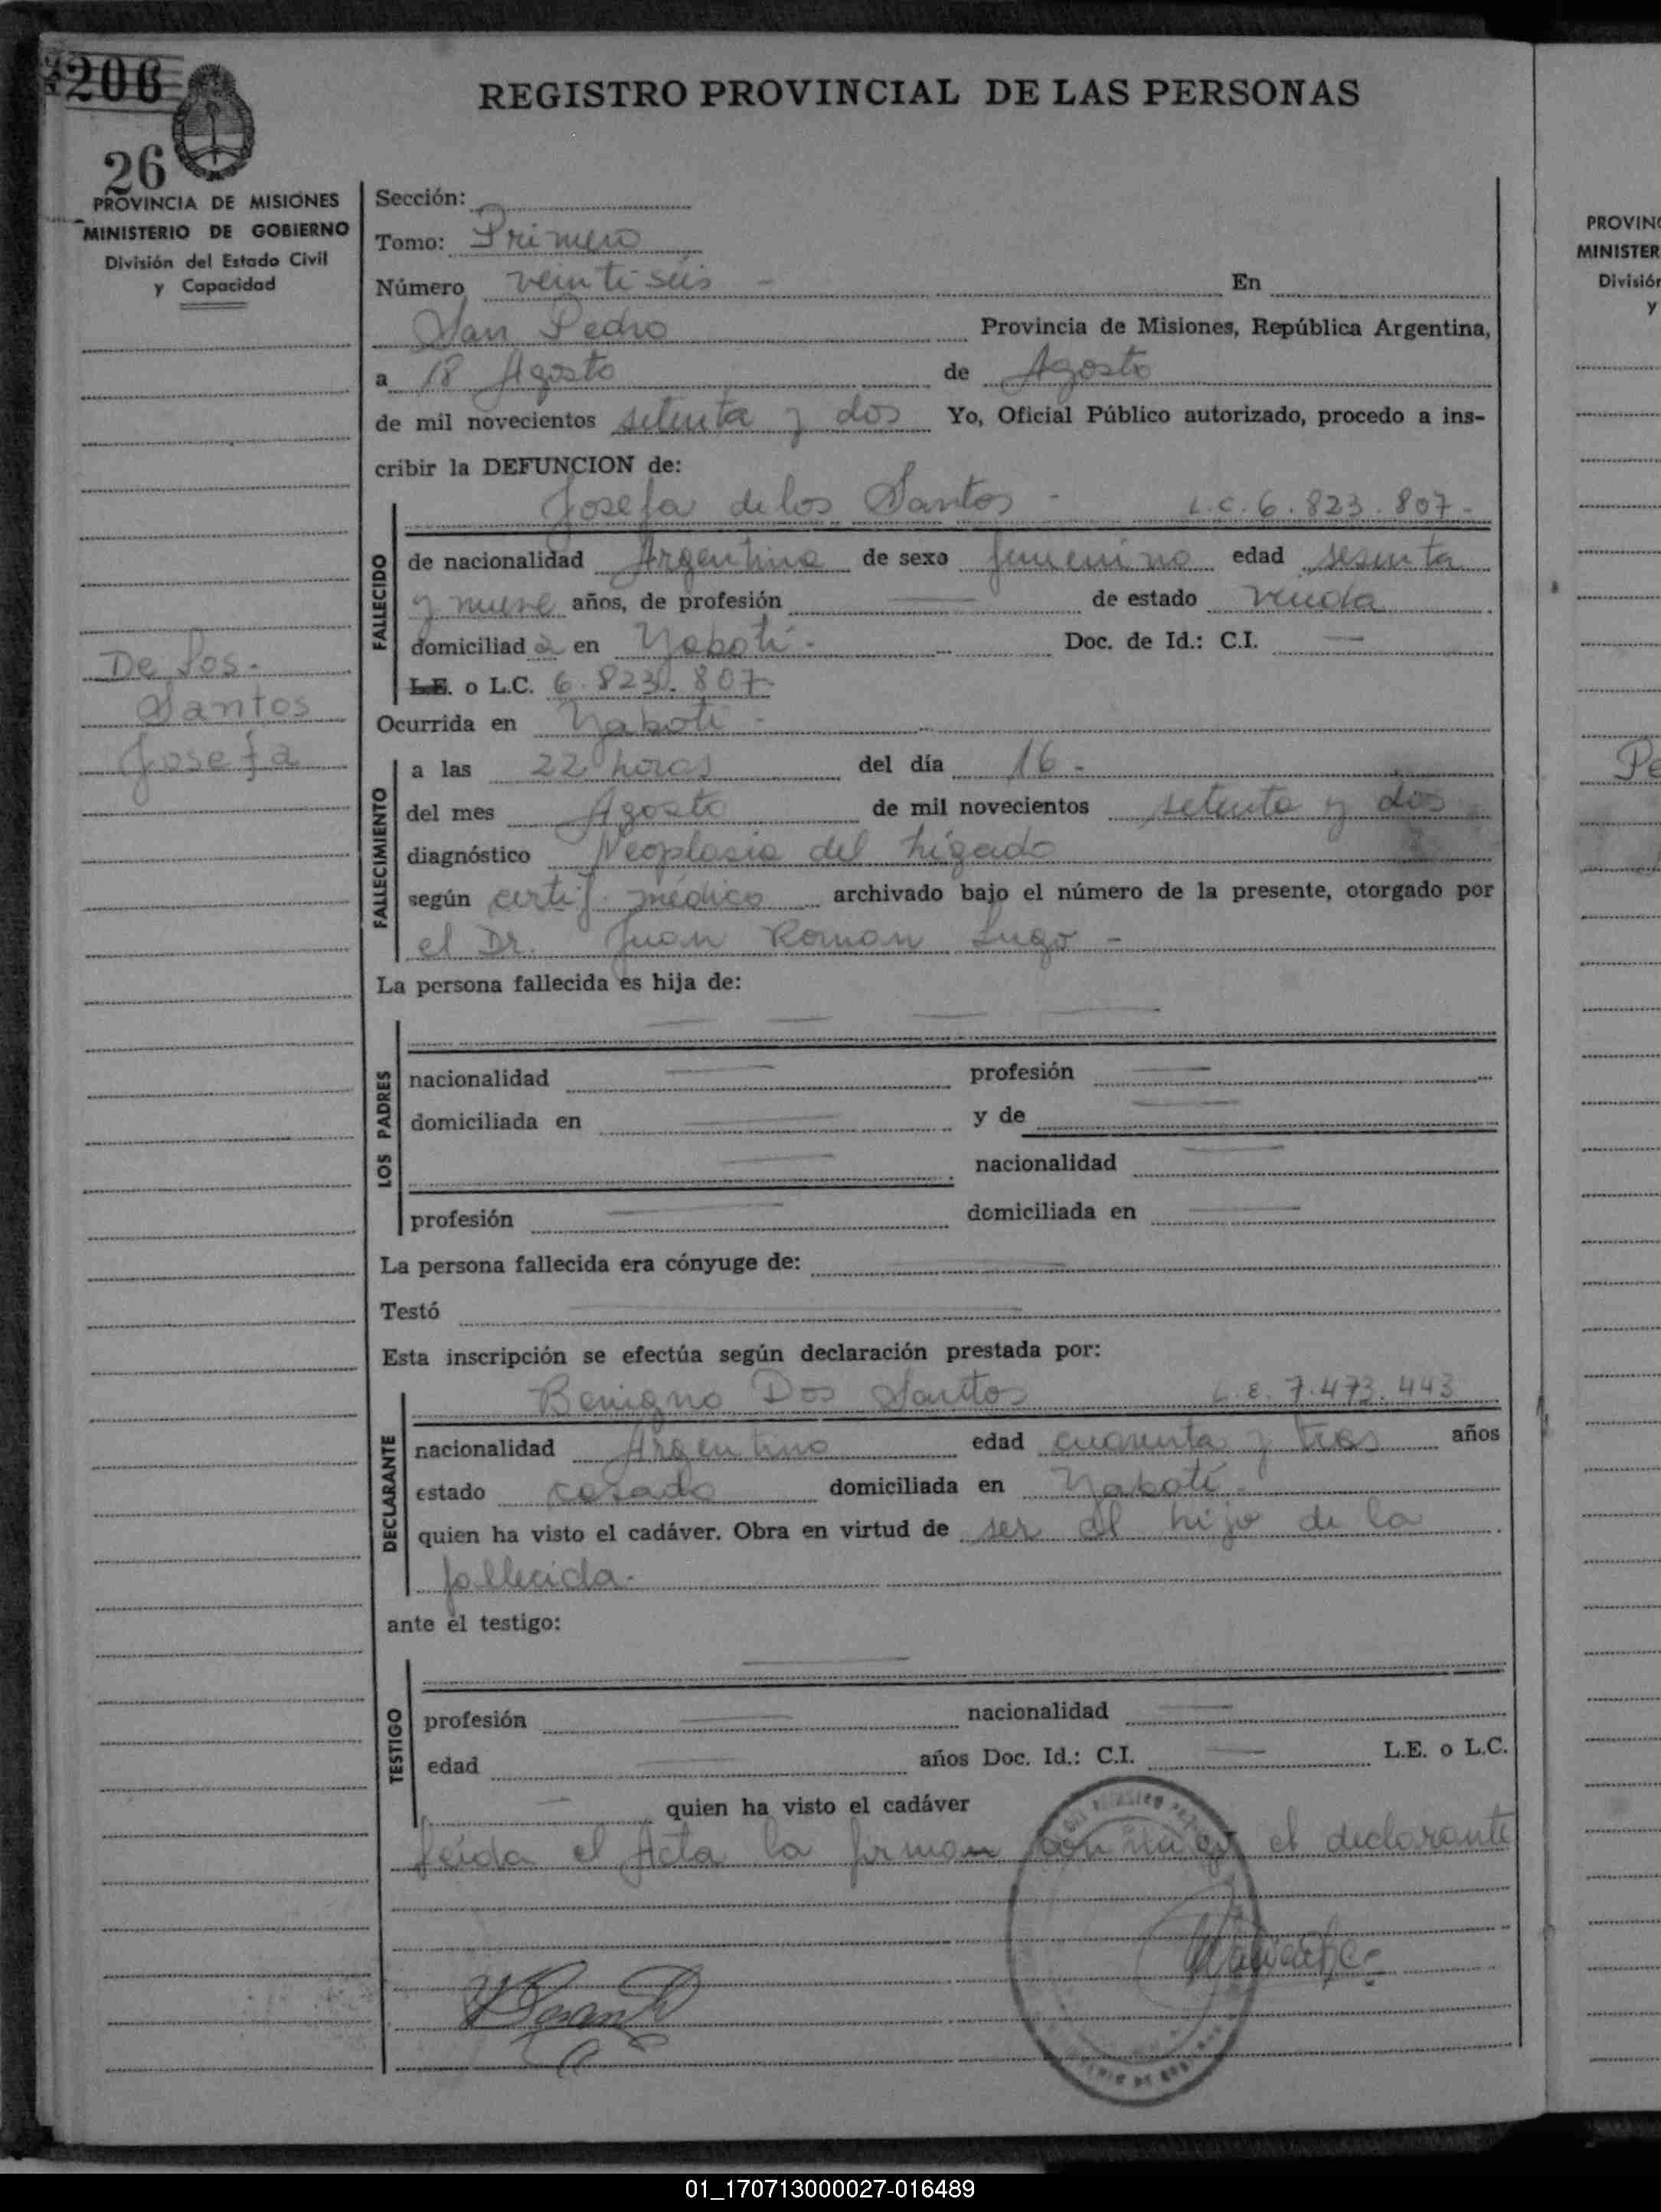 206
26
REGISTRO PROVINCIAL DE LAS PERSONAS
PROVINCIA DE MISIONES
MINISTERIO DE GOBIERNO
División del Estado Civil
y Capacidad
De los
Santos
Josefa
Sección:
Tomo: Primero
Número veintiseis - En
San Pedro Provincia de Misiones, República Argentina,
a 18 Agosto de Agosto
de mil novecientos setenta y dos Yo, Oficial Público autorizado, procedo a ins-
cribir la DEFUNCION de:
Josefa de los Santos - L.C. 6.823.807-
FALLECIDO
de nacionalidad Argentina de sexo femenino edad sesenta
y nueve años, de profesión — de estado viuda
domiciliada en Yabotí - Doc. de Id.: C.I. —
L.E. o L.C. 6.823.807-
Ocurrida en Yabotí -
FALLECIMIENTO
a las 22 horas del día 16 -
del mes Agosto de mil novecientos setenta y dos
diagnóstico Neoplasia del hígado
según certif. médico archivado bajo el número de la presente, otorgado por
el Dr. Juan Roman Lugo -
La persona fallecida es hija de:
LOS PADRES
nacionalidad — profesión —
domiciliada en — y de —
— nacionalidad —
profesión — domiciliada en —
La persona fallecida era cónyuge de: —
Testó —
Esta inscripción se efectúa según declaración prestada por:
Benigno Dos Santos L.E. 7.473.443
DECLARANTE
nacionalidad Argentino edad cuarenta y tres años
estado casado domiciliada en Yabotí -
quien ha visto el cadáver. Obra en virtud de ser el hijo de la
fallecida.
ante el testigo:
TESTIGO
profesión — nacionalidad —
edad — años Doc. Id.: C.I. — L.E. o L.C.
— quien ha visto el cadáver
Leída el Acta la firman conmigo el declarante
PROVIN
MINISTER
División
y
Pe
01_170713000027-016489